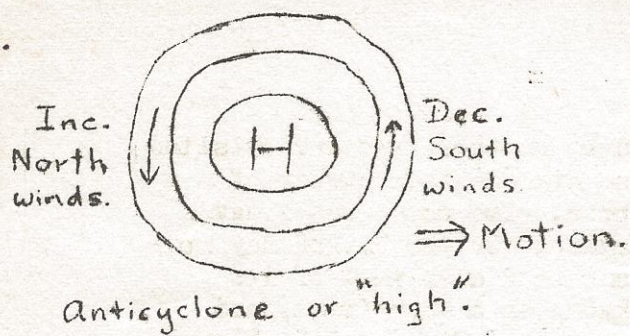 Inc.
North
winds.
H
Dec.
South
winds.
Motion.
Anticyclone or "high".